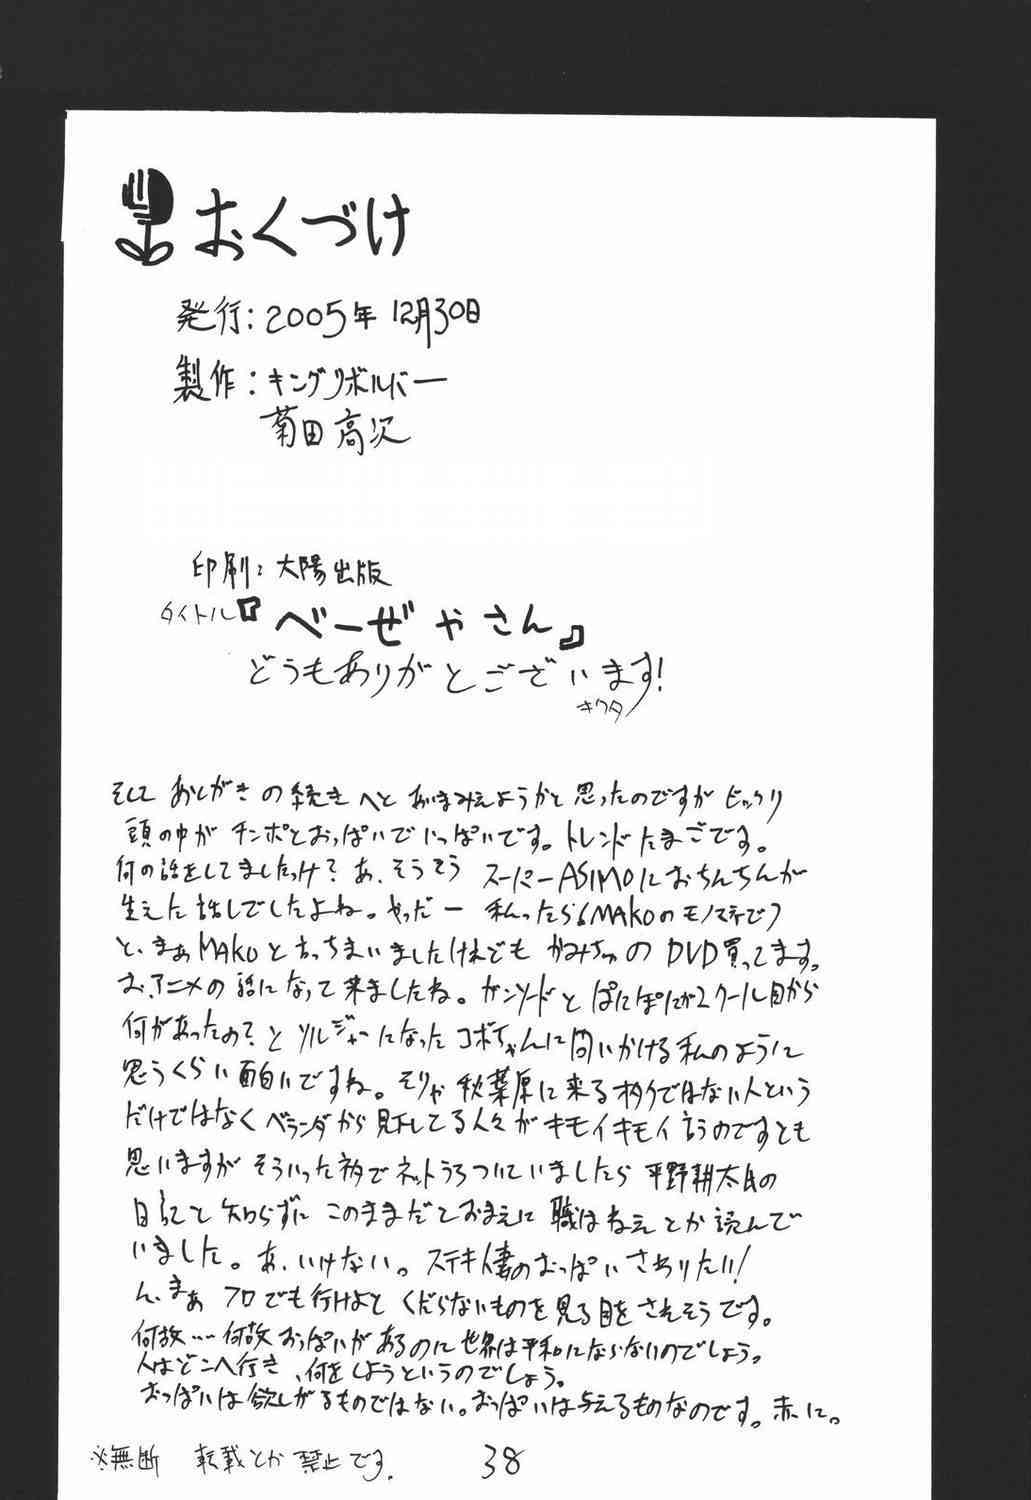 おくづけ
発行：2005年 12月30日
製作：キングリボルバー
菊田高次
印刷：大陽出版
タイトル『べーぜやさん』
どうもありがとございます!
キクタ
そして あとがきの続きへと あいまみえようかと思ったのですが ビックリ
頭の中が チンポとおっぱいでいっぱいです。トレンドたまごです。
何の話をしてましたっけ？あ、そうそう スーパーASIMOにおちんちんが
生えた話しでしたよね。やっだー 私ったら MAKOのモノマネで
と、まぁMAKOと言っちまいましたけれども かみちゅのDVD買ってます。
お、アニメの話になって来ましたね。ガンソードとぱにぽにが2クール目から
何があったの？と ソルジャーになったコボちゃんに問いかける私のように
思うくらい面白いですね。そりゃ秋葉原に来るオタクではない人という
だけではなくベランダから見下してる人々がキモイキモイ言うのですとも
思いますが そういったネタでネットうろついていましたら 平野耕太氏の
日記と知らずに このままだとおまえに 職はねえとか読んで
いました。あ、いけない。ステキ人妻のおっぱいさわりたい!
ん、まぁ フロでも行けよと くだらないものを見る目をされそうです。
何故……何故おっぱいがあるのに世界は平和にならないのでしょう。
人はどこへ行き、何をしようというのでしょう。
おっぱいは欲しがるものではない。おっぱいは与えるものなのです。赤に。
※無断 転載とか禁止です.
38